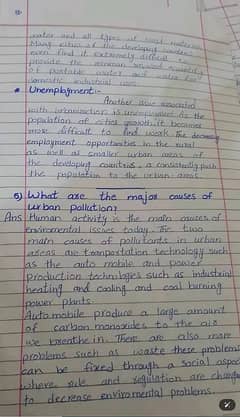 water and all types of waste materials
Many cities of the developing countries
even find it extremely difficult to
provide the minimum required quantity
of portable water and water for
domestic industrial uses.
* Unemployment:-
Another issue associated
with urbanisation is unemployment. As the
population of cities growth, it becomes
more difficult to find work. The decreasing
employment opportunities in the rural
as well as smaller urban areas of
the developing countries, a consistently push
the population to the urban areas
5) What are the major causes of
urban pollution?
Ans Human activity is the main causes of
Enviromental issues today. The two
main causes of pollutants in urban
areas are tansportation technology such
as the auto mobile and power
production technologies such as industrial
heating and cooling and coal burning
power plants.
Auto mobile produce a large amount
of carbon monoxides to the air
we breathe in. There are also more
problems such as waste these problems
can be fixed through a social aspect
where rule and regulation are change
to decrease enviromental problems.